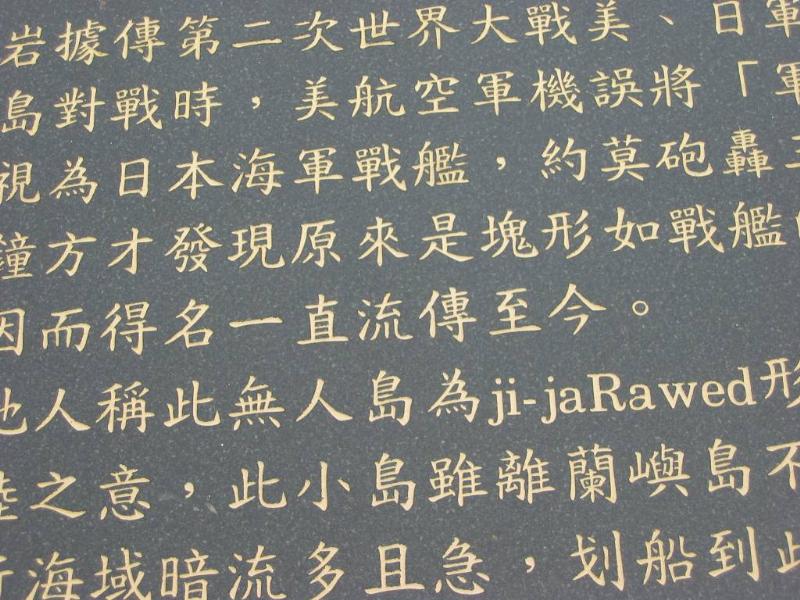 岩據傳第二次世界大戰美、日軍
島對戰時，美航空軍機誤將「軍
視為日本海軍戰艦，約莫砲轟三
鐘方才發現原來是塊形如戰艦
因而得名一直流傳至今。
地人稱此無人島為ji-jaRawed形
陸之意，此小島雖離蘭嶼島不
海域暗流多且急，划船到此